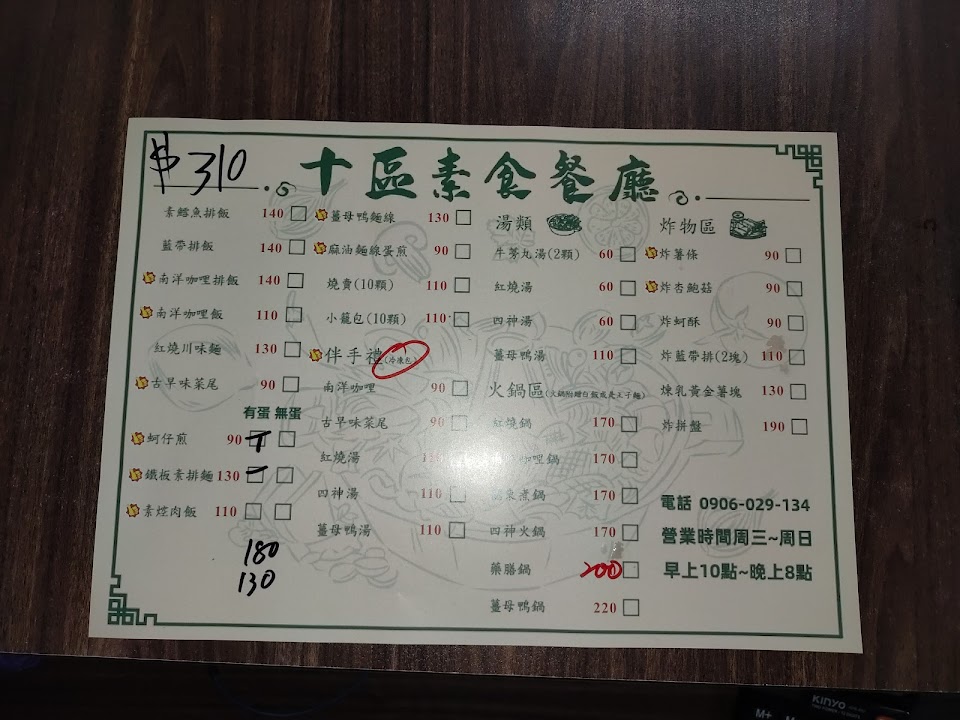 $310
十區素食餐廳
素鱈魚排飯 140
藍帶排飯 140
南洋咖哩排飯 140
南洋咖哩飯 110
紅燒川味麵 130
古早味菜尾 90
有蛋 無蛋
蚵仔煎 90
鐵板素排麵 130
素焢肉飯 110
180
130
薑母鴨麵線 130
麻油麵線蛋煎 90
燒賣(10顆) 110
小籠包(10顆) 110
伴手禮(冷凍包)
南洋咖哩 90
古早味菜尾 90
紅燒湯
四神湯 110
薑母鴨湯 110
湯類
牛蒡丸湯(2顆) 60
紅燒湯 60
四神湯 60
薑母鴨湯 110
火鍋區(火鍋附贈白飯或是王子麵)
紅燒鍋 170
咖哩鍋 170
煮鍋 170
四神火鍋 170
藥膳鍋 200
薑母鴨鍋 220
炸物區
炸薯條 90
炸杏鮑菇 90
炸蚵酥 90
炸藍帶排(2塊) 110
煉乳黃金薯塊 130
炸拼盤 190
電話 0906-029-134
營業時間周三~周日
早上10點~晚上8點
KINYO
M+